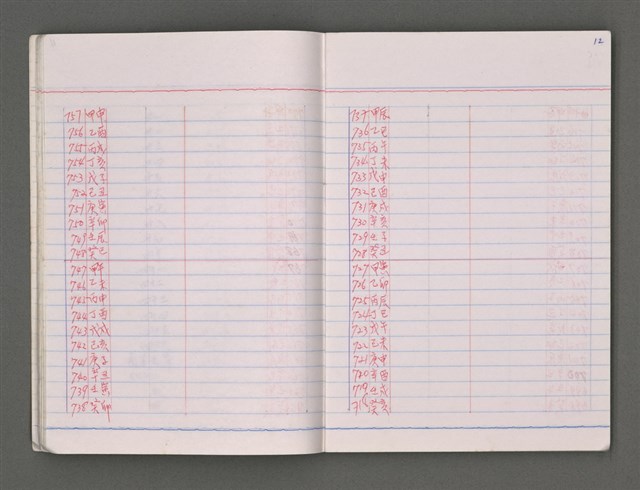 757 甲申
756 乙酉
755 丙戌
754 丁亥
753 戊子
752 己丑
751 庚寅
750 辛卯
749 壬辰
748 癸巳
747 甲午
746 乙未
745 丙申
744 丁酉
743 戊戌
742 己亥
741 庚子
740 辛丑
739 壬寅
738 癸卯
12
737 甲辰
736 乙巳
735 丙午
734 丁未
733 戊申
732 己酉
731 庚戌
730 辛亥
729 壬子
728 癸丑
727 甲寅
726 乙卯
725 丙辰
724 丁巳
723 戊午
722 己未
721 庚申
720 辛酉
719 壬戌
718 癸亥